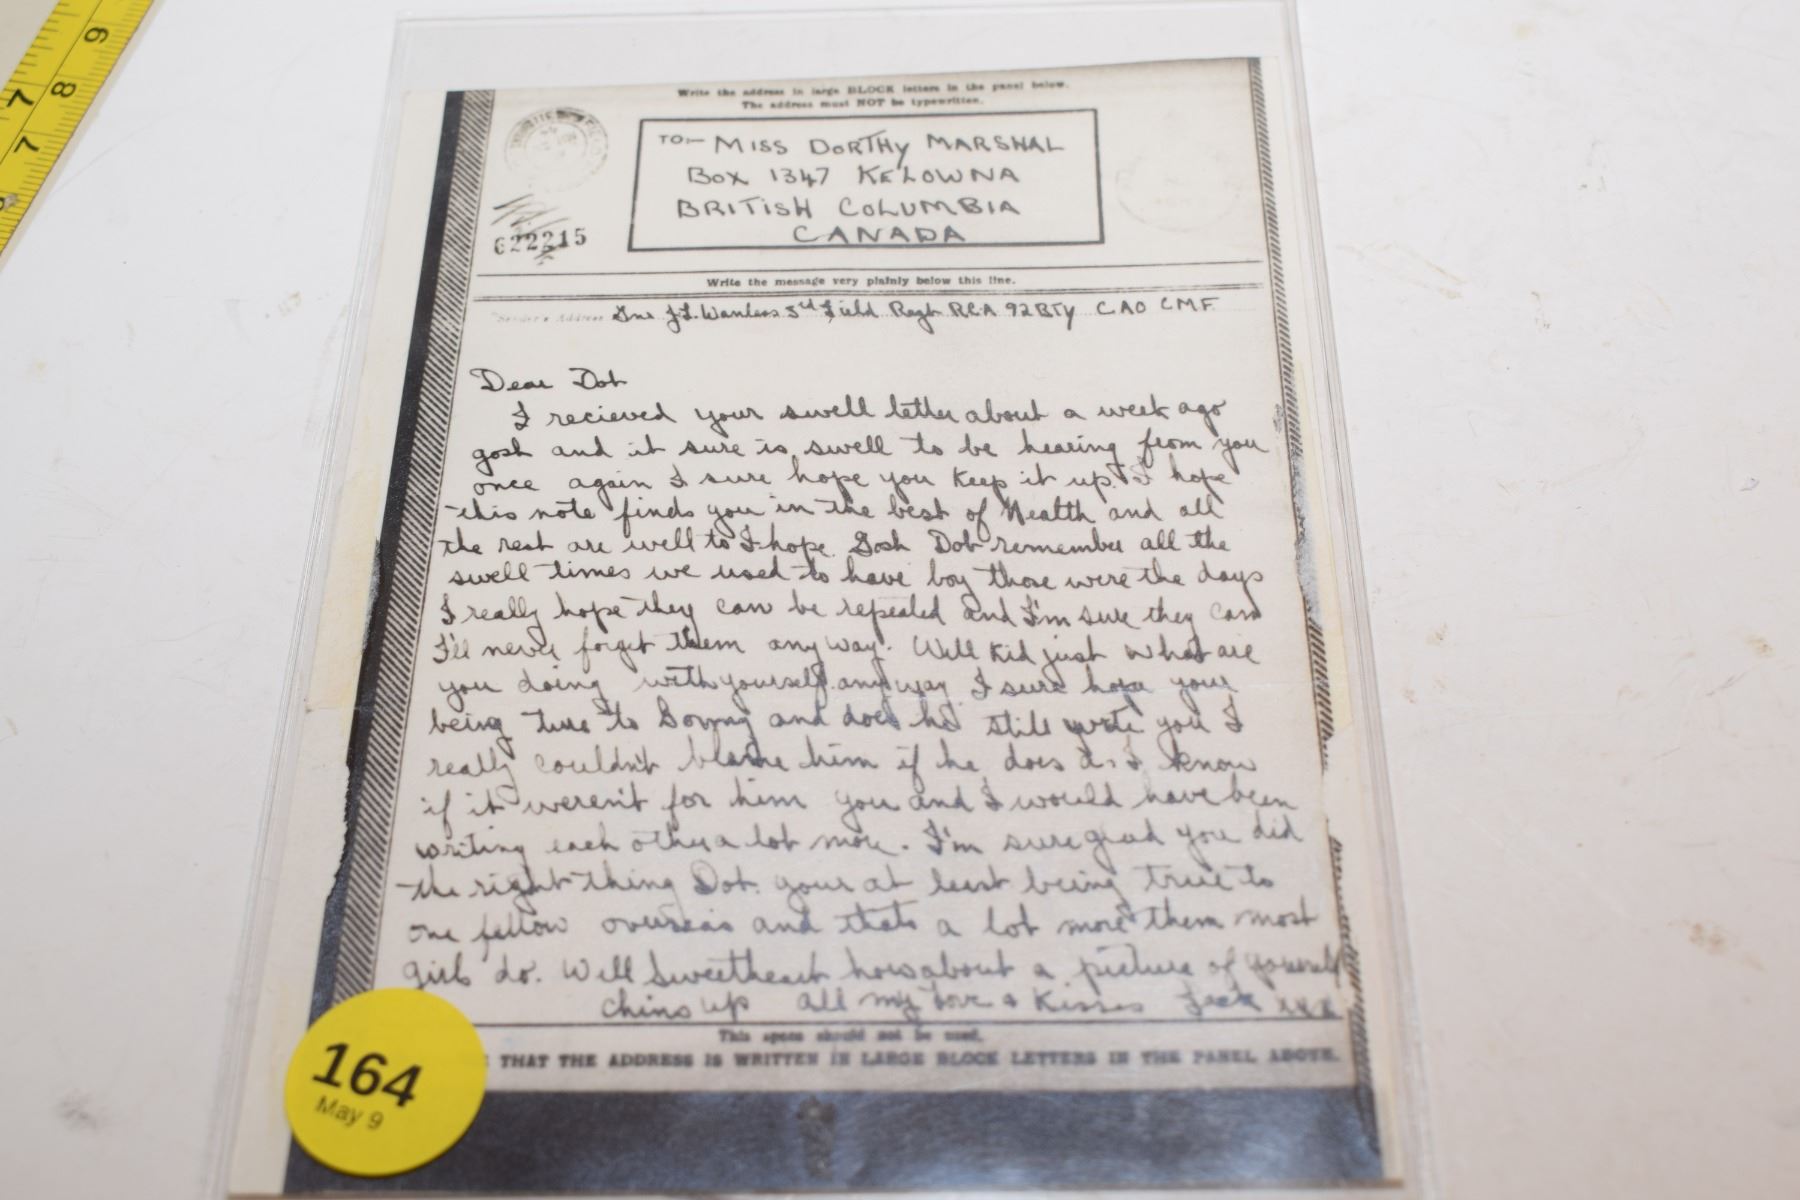 Write the address in large BLOCK letters in the panel below.
The address must NOT be typewritten.
TO:- MISS DORTHY MARSHAL
BOX 1347 KELOWNA
BRITISH COLUMBIA
CANADA
622215
Write the message very plainly below this line.
Sender's Address Gnr J.L. Wanless 3rd Field Regt RCA 92 BTY CAO CMF
Dear Dot
I recieved your swell letter about a week ago
gosh and it sure is swell to be hearing from you
once again I sure hope you keep it up. I hope
this note finds you in the best of Health and all
the rest are well to I hope. Gosh Dot remember all the
swell times we used to have boy those were the days
I really hope they can be repeated and I'm sure they can
I'll never forget them anyway. Well kid just what are
you doing with yourself anyway I sure hope your
being true to and does he still write you I
really couldn't blame him if he does as I know
if it weren't for him you and I would have been
writing each other a lot more. I'm sure glad you did
the right thing Dot. your at least being true to
one fellow overseas and thats a lot more them most
girls do. Well Sweetheart how about a picture of yourself
chins up all my Love & Kisses Jack xxx
This space should not be used.
THAT THE ADDRESS IS WRITTEN IN LARGE BLOCK LETTERS IN THE PANEL ABOVE.
164
May 9
9
8
7
7